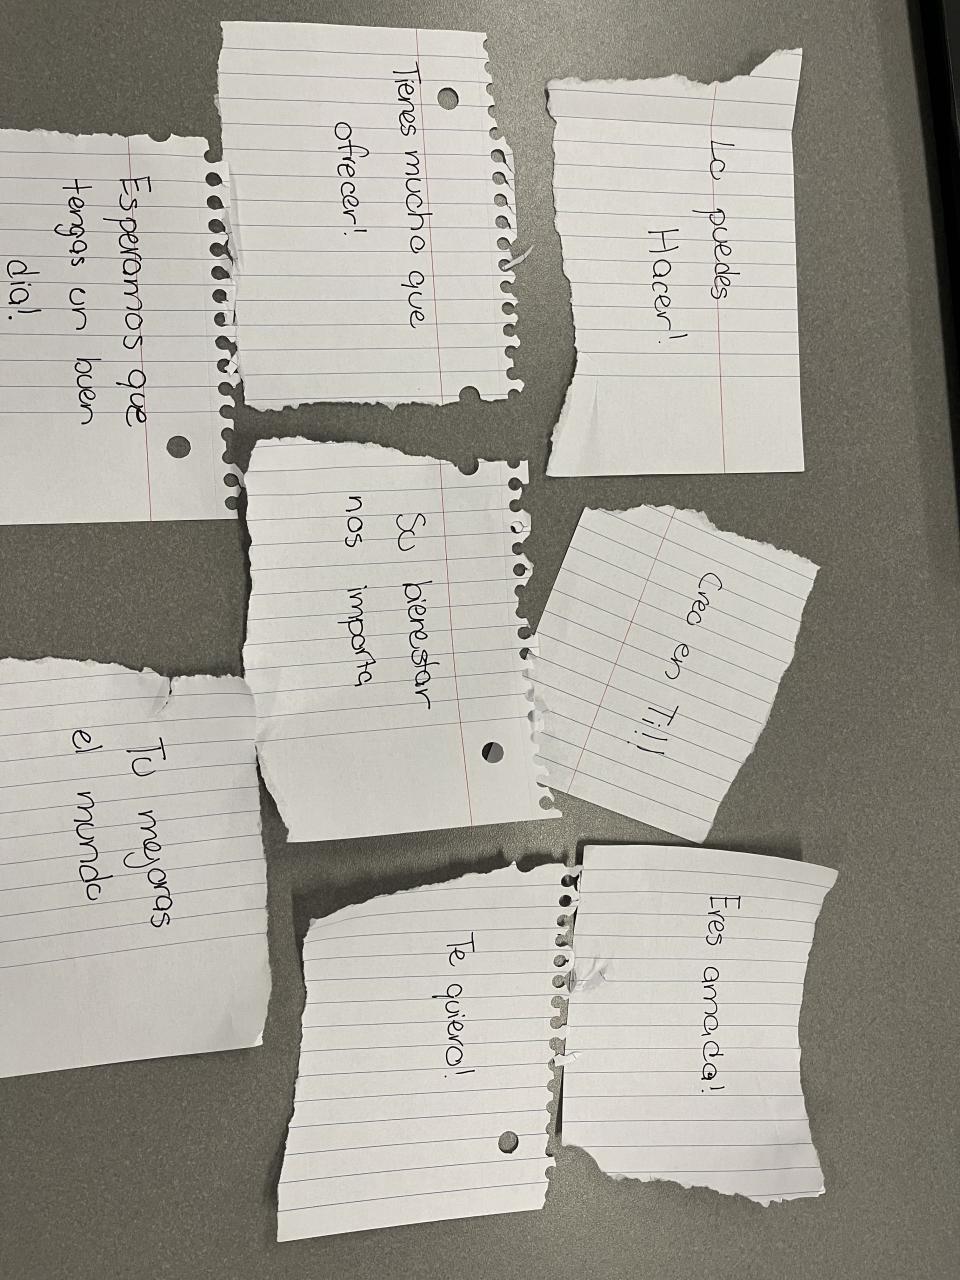 La puedes
Hacer!
Creo en Ti!!
Eres amada!
Tienes mucho que
ofrecer!
Su bienestar
nos importa
Te quiero!
Esperamos que
tengas un buen
dia!
Tu mejoras
el mundo